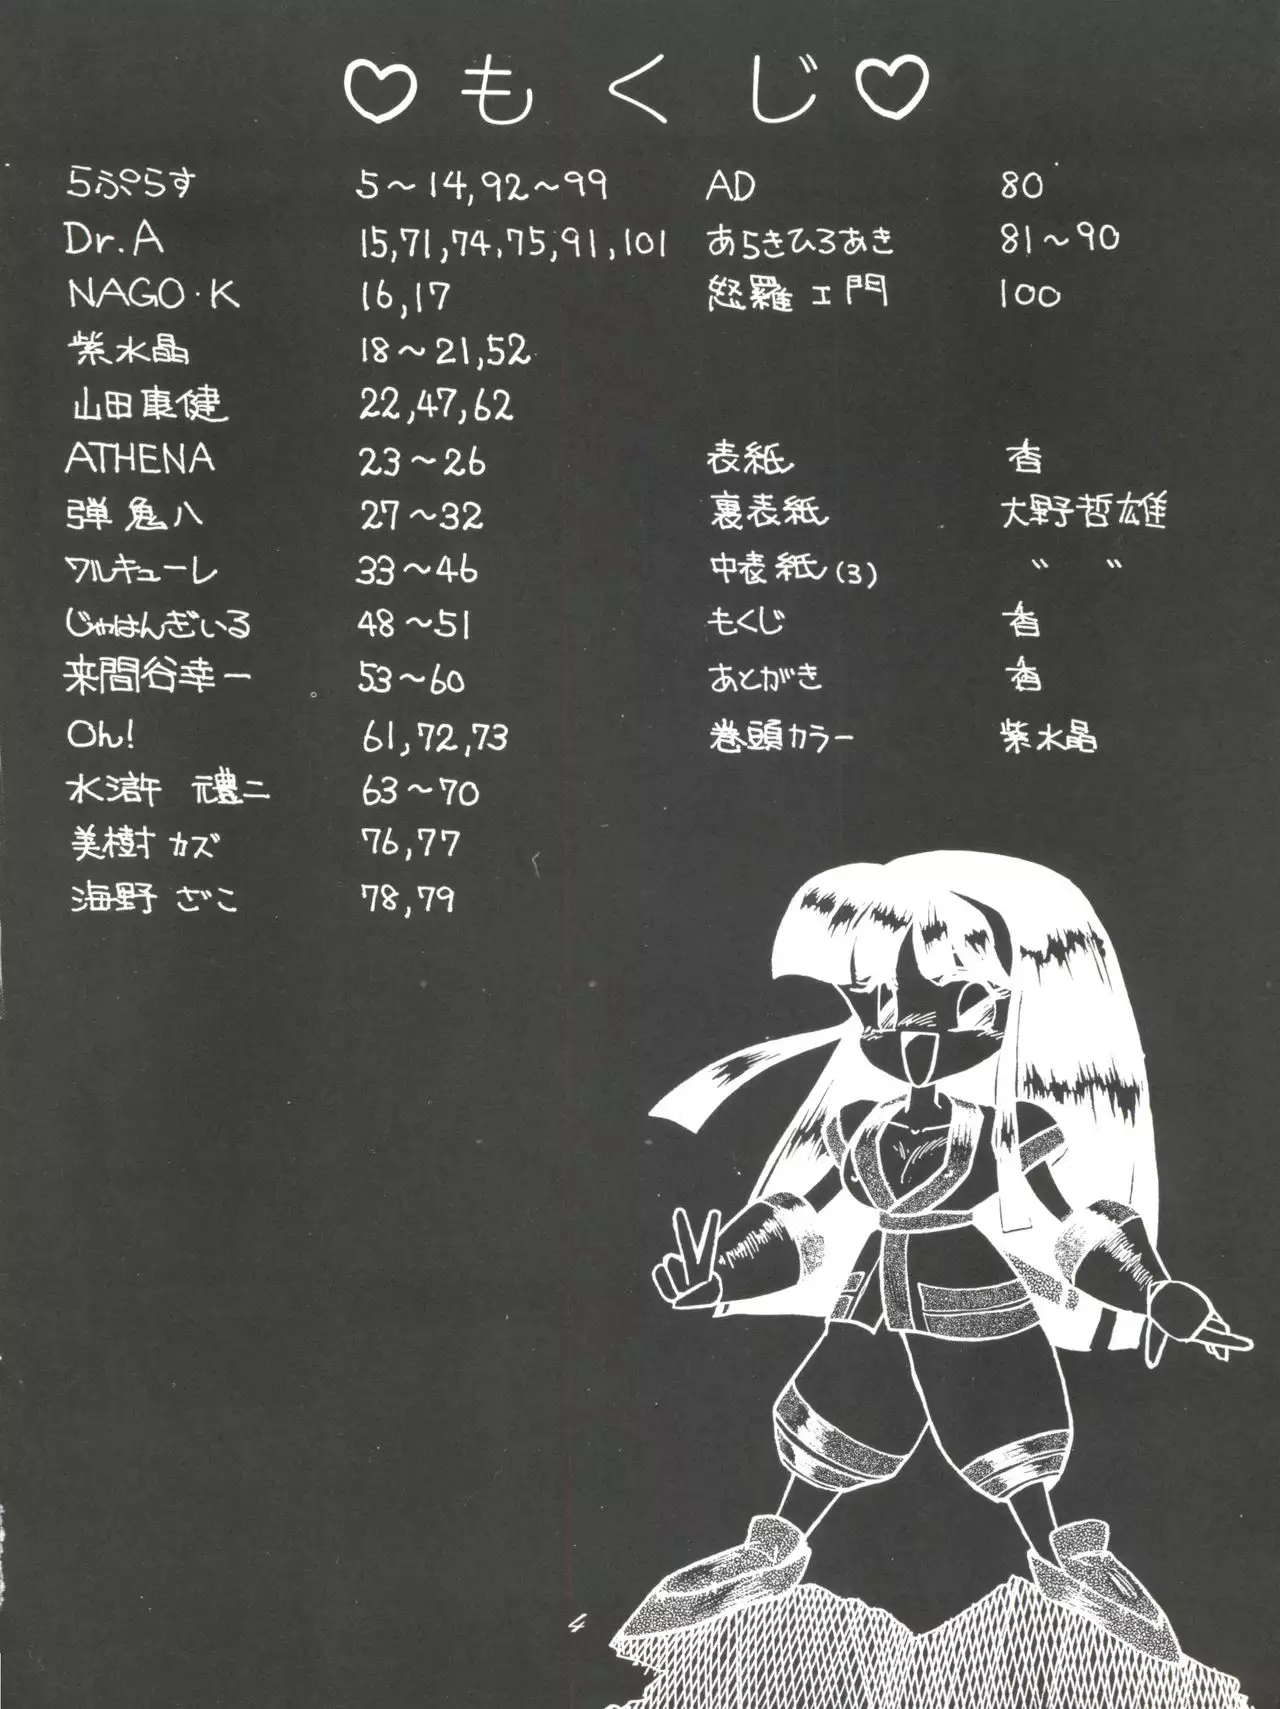 ♡もくじ♡
らぷらす 5～14,92～99
Dr.A 15,71,74,75,91,101
NAGO・K 16,17
紫水晶 18～21,52
山田康健 22,47,62
ATHENA 23～26
弾鬼八 27～32
ワルキューレ 33～46
じゃはんぎいる 48～51
来間谷幸一 53～60
Oh! 61,72,73
水滸 元禮二 63～70
美樹カズ 76,77
海野 ざこ 78,79
AD 80
あらきひろあき 81～90
怒羅ヱ門 100
表紙 香
裏表紙 大野哲雄
中表紙(3) 〃 〃
もくじ 香
あとがき 香
巻頭カラー 紫水晶
4